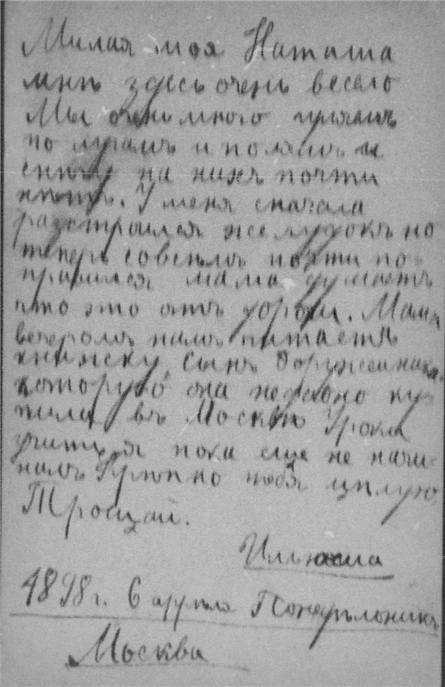 Милая моя Наташа
мнѣ здесь очень весело
Мы очень много гуляемъ
по лугамъ и полямъ и
снѣгу на нихъ почти
нѣтъ. У меня сначала
разстроился желудокъ но
теперь совсѣмъ почти по-
правился мама думаетъ
что это отъ дороги. Мама
вечеромъ намъ читаетъ
книжку, сынъ
которую она недавно ку-
пила въ Москвѣ Уроки
учить я пока еще не начи-
налъ Крѣпко тебя цѣлую
Прощай.
Ильюша
1898 г. 6 апрѣля Понедѣльникъ
Москва